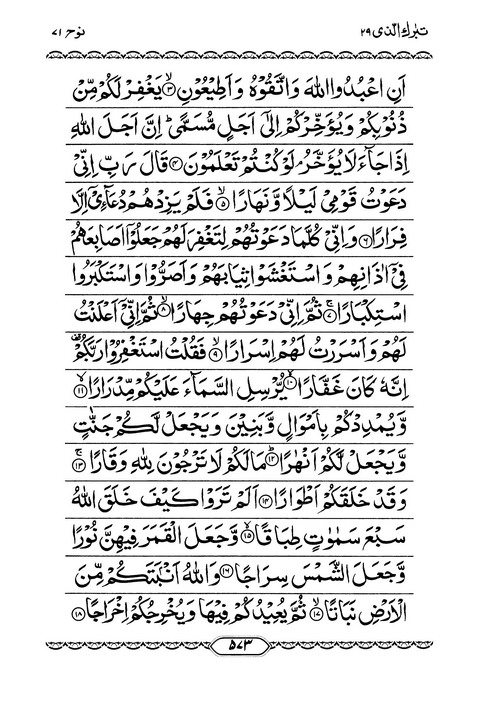 تبرك الذى ٢٩
نوح ٧١
اَنِ اعْبُدُوا اللّٰهَ وَاتَّقُوْهُ وَاَطِيْعُوْنِ ۙ﴿۳﴾ يَغْفِرْ لَكُمْ مِّنْ
ذُنُوْبِكُمْ وَيُؤَخِّرْكُمْ اِلٰٓى اَجَلٍ مُّسَمًّى ؕ اِنَّ اَجَلَ اللّٰهِ
اِذَا جَآءَ لَا يُؤَخَّرُ ۘ لَوْ كُنْتُمْ تَعْلَمُوْنَ ﴿۴﴾ قَالَ رَبِّ اِنِّىْ
دَعَوْتُ قَوْمِىْ لَيْلًا وَّنَهَارًا ۙ﴿۵﴾ فَلَمْ يَزِدْهُمْ دُعَآءِىْۤ اِلَّا
فِرَارًا ﴿۶﴾ وَاِنِّىْ كُلَّمَا دَعَوْتُهُمْ لِتَغْفِرَ لَهُمْ جَعَلُوْۤا اَصَابِعَهُمْ
فِىْۤ اٰذَانِهِمْ وَاسْتَغْشَوْا ثِيَابَهُمْ وَاَصَرُّوْا وَاسْتَكْبَرُوا
اسْتِكْبَارًا ۚ﴿۷﴾ ثُمَّ اِنِّىْ دَعَوْتُهُمْ جِهَارًا ۙ﴿۸﴾ ثُمَّ اِنِّىْۤ اَعْلَنْتُ
لَهُمْ وَاَسْرَرْتُ لَهُمْ اِسْرَارًا ۙ﴿۹﴾ فَقُلْتُ اسْتَغْفِرُوْا رَبَّكُمْ ؕ
اِنَّهٗ كَانَ غَفَّارًا ۙ﴿۱۰﴾ يُّرْسِلِ السَّمَآءَ عَلَيْكُمْ مِّدْرَارًا ۙ﴿۱۱﴾
وَّيُمْدِدْكُمْ بِاَمْوَالٍ وَّبَنِيْنَ وَيَجْعَلْ لَّكُمْ جَنّٰتٍ
وَّيَجْعَلْ لَّكُمْ اَنْهٰرًا ؕ﴿۱۲﴾ مَا لَكُمْ لَا تَرْجُوْنَ لِلّٰهِ وَقَارًا ۚ﴿۱۳﴾
وَقَدْ خَلَقَكُمْ اَطْوَارًا ﴿۱۴﴾ اَلَمْ تَرَوْا كَيْفَ خَلَقَ اللّٰهُ
سَبْعَ سَمٰوٰتٍ طِبَاقًا ۙ﴿۱۵﴾ وَّجَعَلَ الْقَمَرَ فِيْهِنَّ نُوْرًا
وَّجَعَلَ الشَّمْسَ سِرَاجًا ﴿۱۶﴾ وَاللّٰهُ اَنْۢبَتَكُمْ مِّنَ
الْاَرْضِ نَبَاتًا ۙ﴿۱۷﴾ ثُمَّ يُعِيْدُكُمْ فِيْهَا وَيُخْرِجُكُمْ اِخْرَاجًا ﴿۱۸﴾
۵۷۳